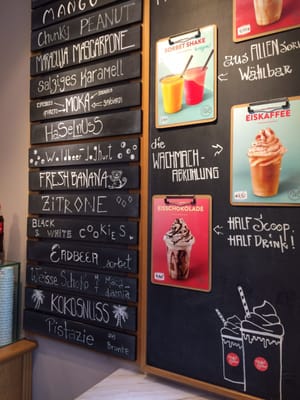 MANGO
Chunky PEANUT
MARACUJA MASCARPONE
salziges Karamell
MOKA
HaSeLnuss
Waldbeer-Joghurt
FRESH BANANA
ZITRONE
BLACK & WHITE COOKIES
ERDBEER sorbet
Weisse Schoko + Macadamia
KOKOSNUSS
Pistazie aus Bronte
SORBET SHAKE
aus ALLEN SORTEN
Wählbar
die
WACHMACH-
ABKÜHLUNG
EISKAFFEE
EISSCHOKOLADE
HALF SCOOP,
HALF DRINK!